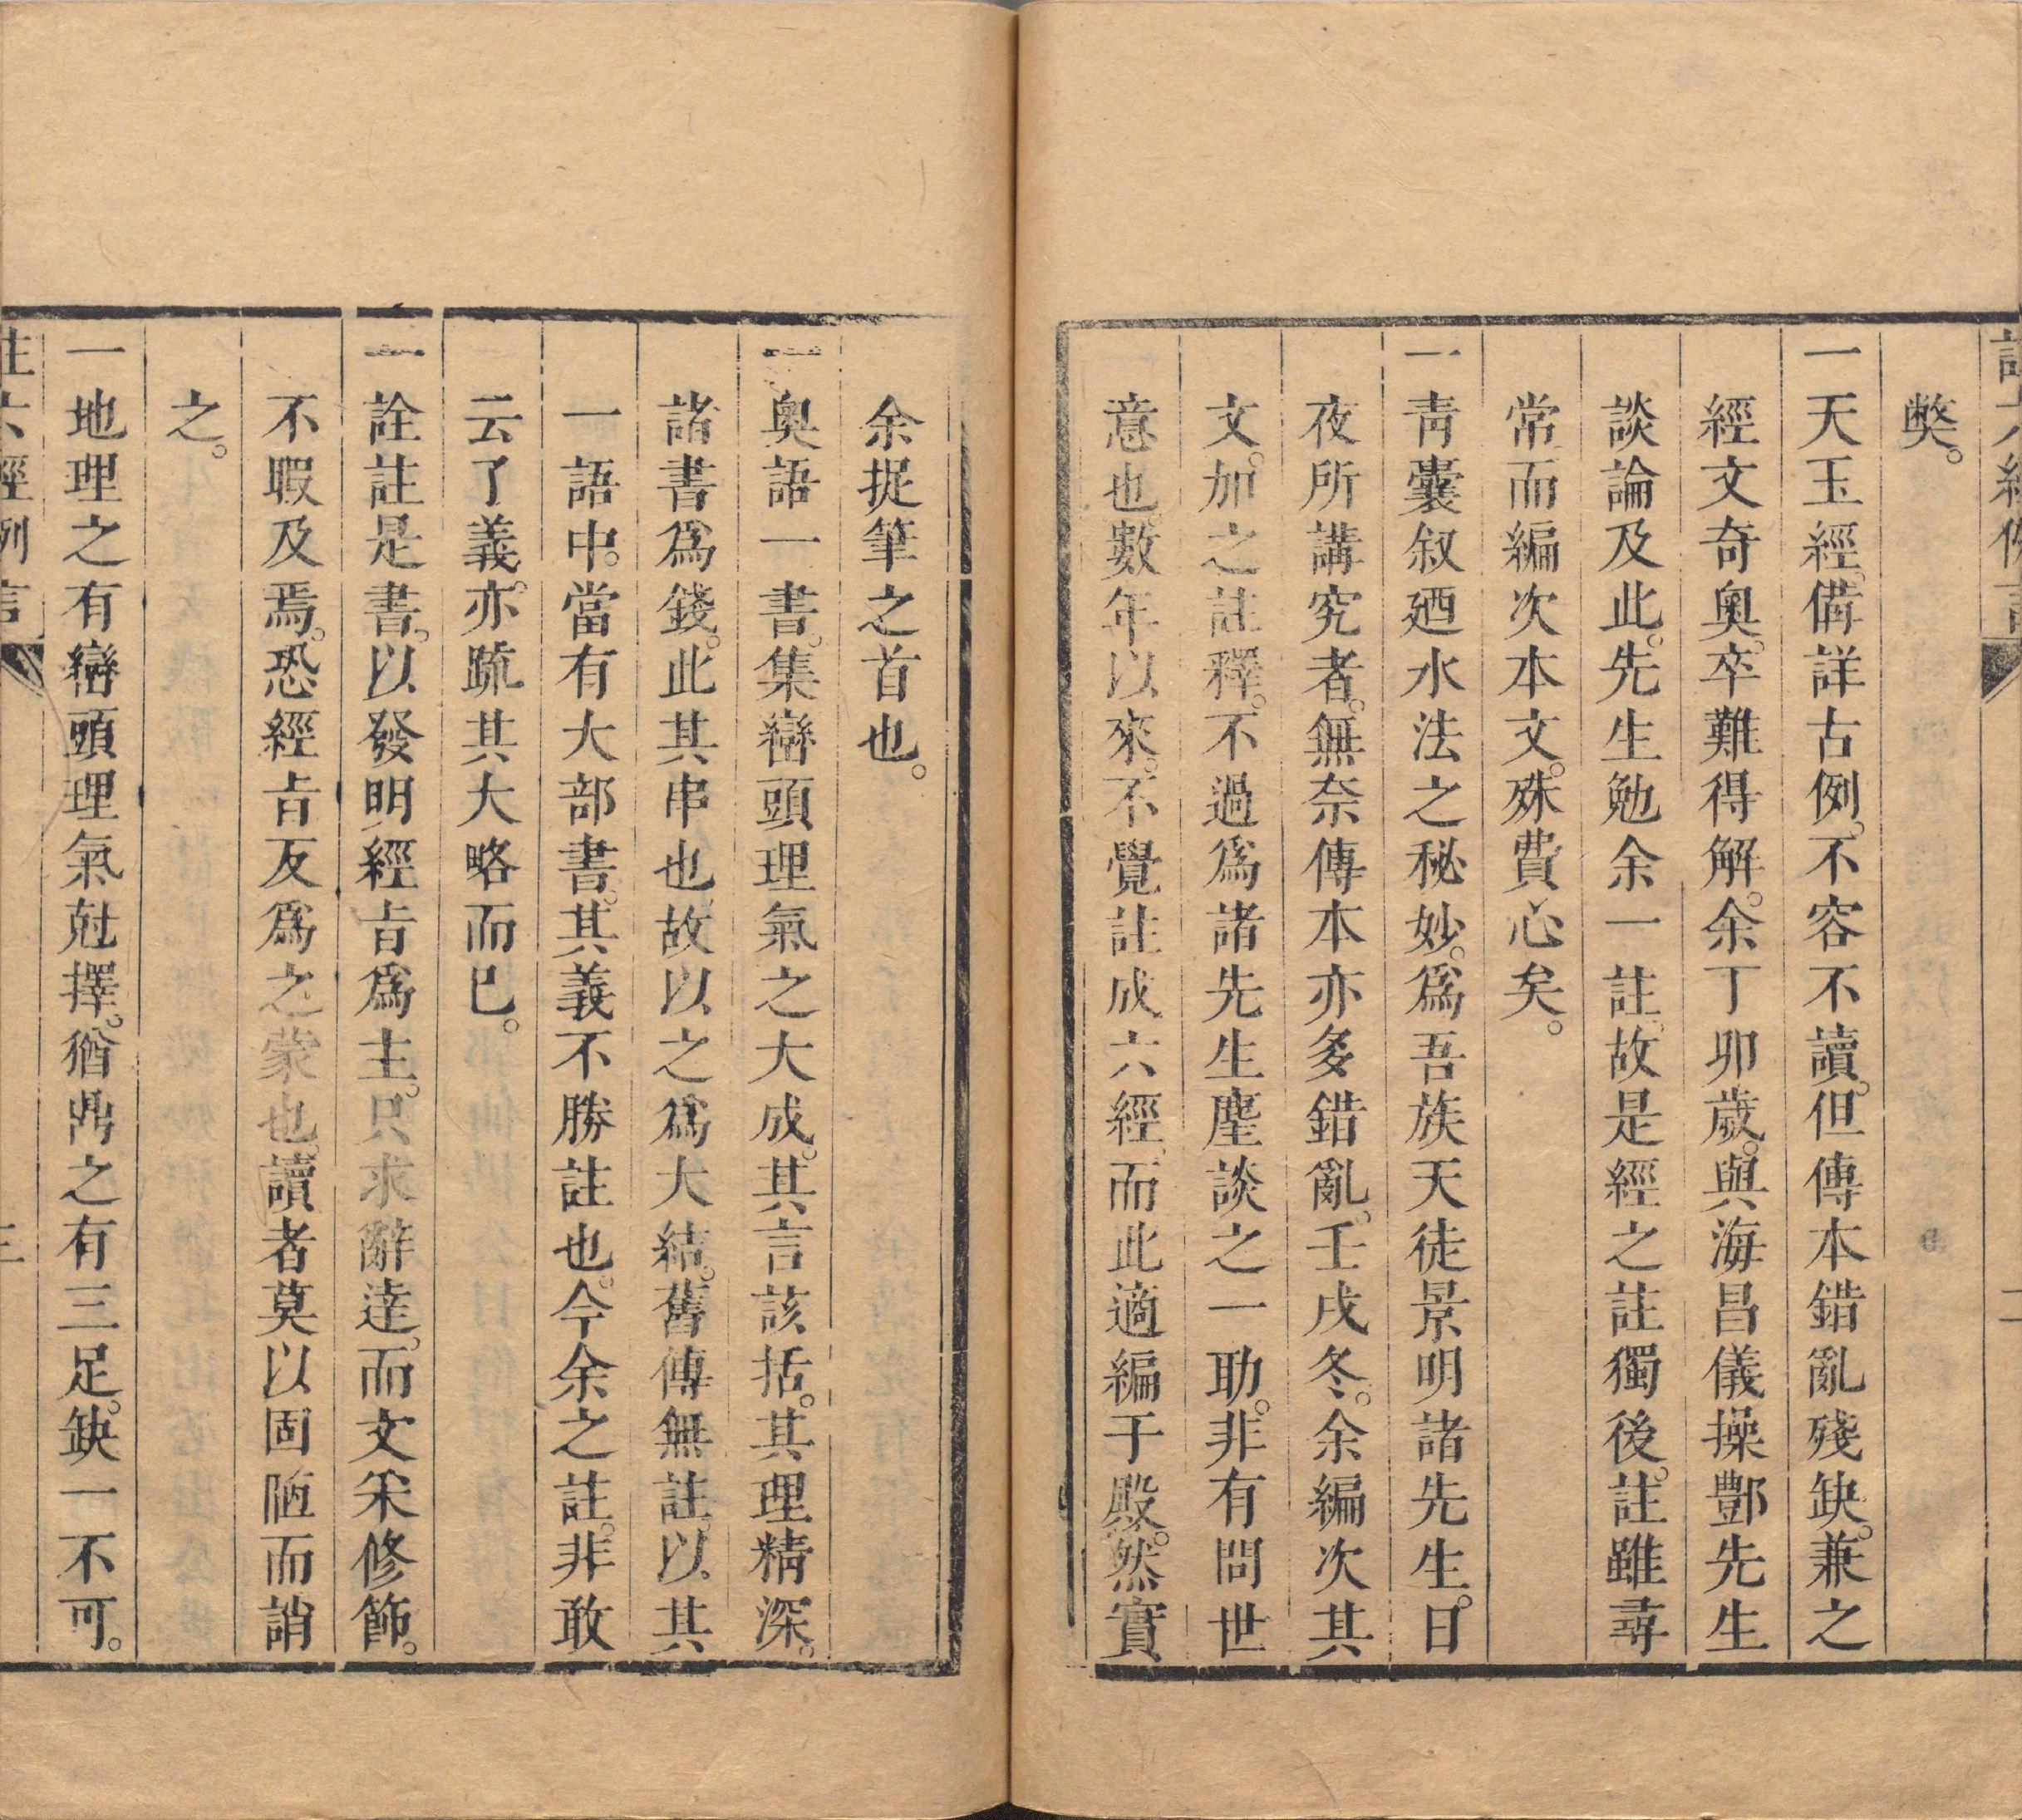 弊。
一天玉經。備詳古例。不容不讀。但傳本錯亂殘缺。兼之
經文奇奧。卒難得解。余丁卯歲。與海昌儀操酆先生
談論及此。先生勉余一註。故是經之註獨後。註雖尋
常而編次本文。殊費心矣。
一青囊叙廼水法之秘妙。爲吾族天徒景明諸先生。日
夜所講究者。無奈傳本亦多錯亂。壬戌冬。余編次其
文。加之註釋。不過爲諸先生麈談之一助。非有問世
意也。數年以來。不覺註成六經。而此適編于殿。然實
余捉筆之首也。
一奧語一書。集巒頭理氣之大成。其言該括。其理精深。
諸書爲錢。此其串也。故以之爲大結。舊傳無註。以其
一語中。當有大部書。其義不勝註也。今余之註。非敢
云了義。亦䟽其大略而已。
一詮註是書。以發明經㫖爲主。只求辭達。而文采修飾。
不暇及焉。恐經㫖反爲之蒙也。讀者莫以固陋而誚
之。
一地理之有巒頭理氣尅擇。猶鼎之有三足。缺一不可。
註六經例言
三